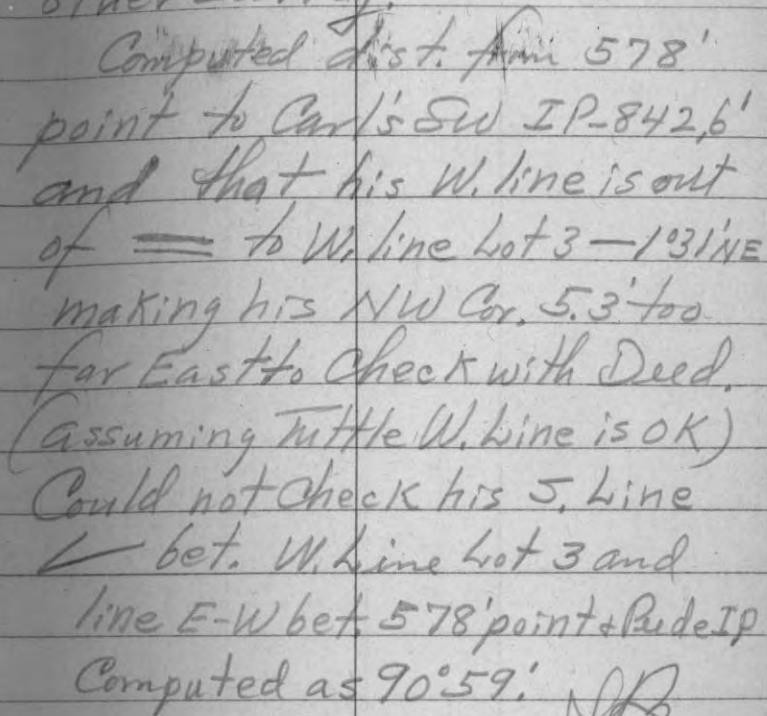 Computed dist. from 578'
point to Carl's SW IP-842.6'
and that his W. line is out
of = to W. line Lot 3 — 1°31' NE
making his NW Cor. 5.3' too
far East to Check with Deed.
(assuming Tuttle W. Line is OK)
Could not Check his S. Line
∠ bet. W. Line Lot 3 and
line E-W bet. 578' point & IP
Computed as 90°59'.